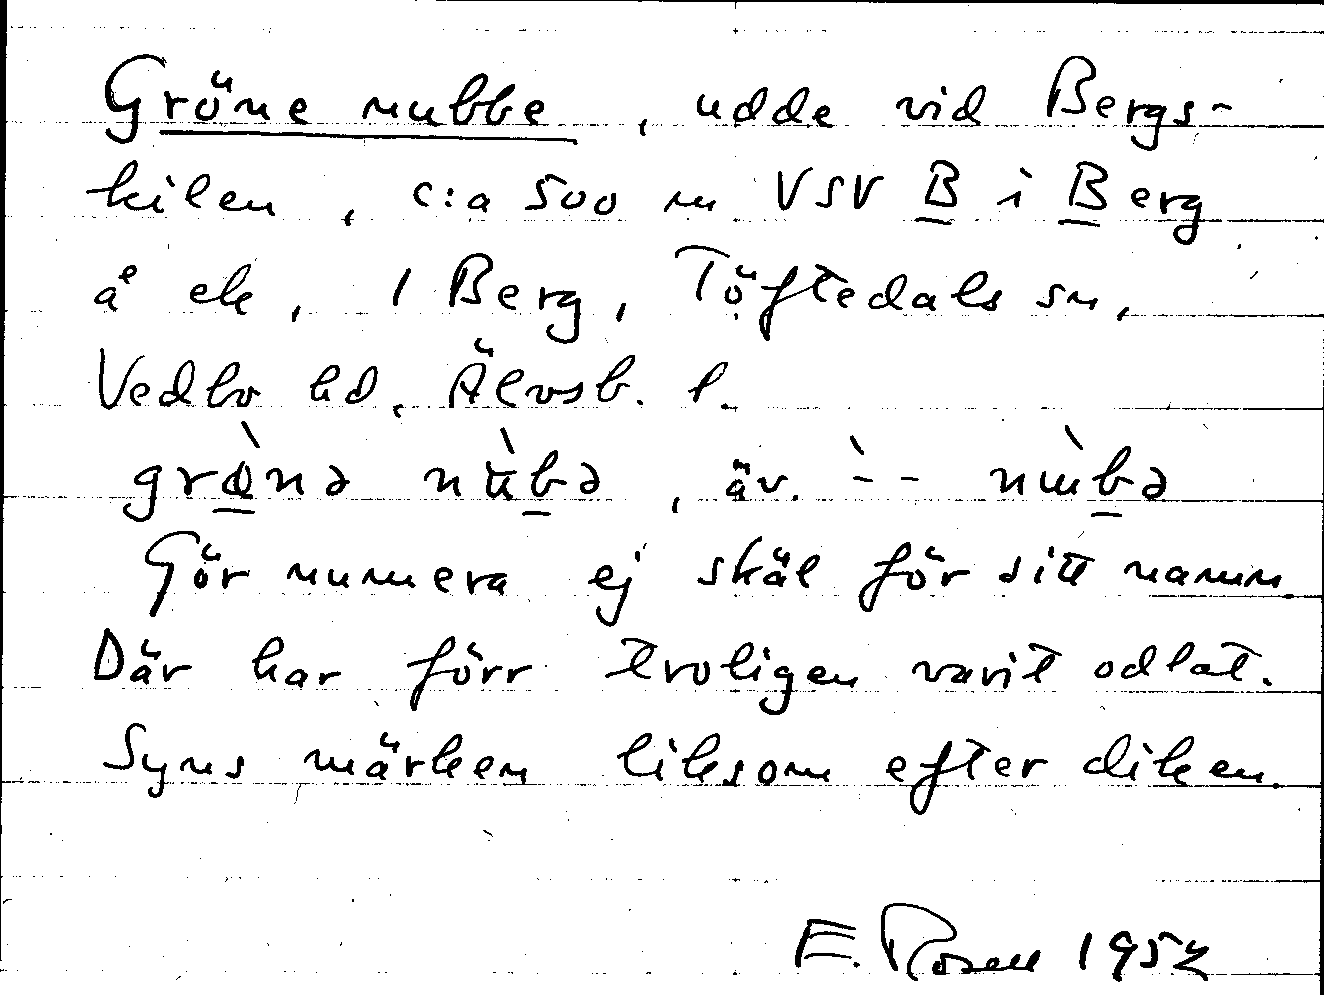 Gröne nubbe, udde vid Bergs-
kilen, c:a 500 m VSV B i Berg
å ek, 1 Berg, Töftedals sn,
Vedbo hd, Älvsb. l.
grø̀nə nùbə, äv. `-- nɯ̀bə
Gör numera ej skäl för sitt namn.
Där har förr troligen varit odlat.
Syns märken liksom efter diken.
E. Rosell 1952